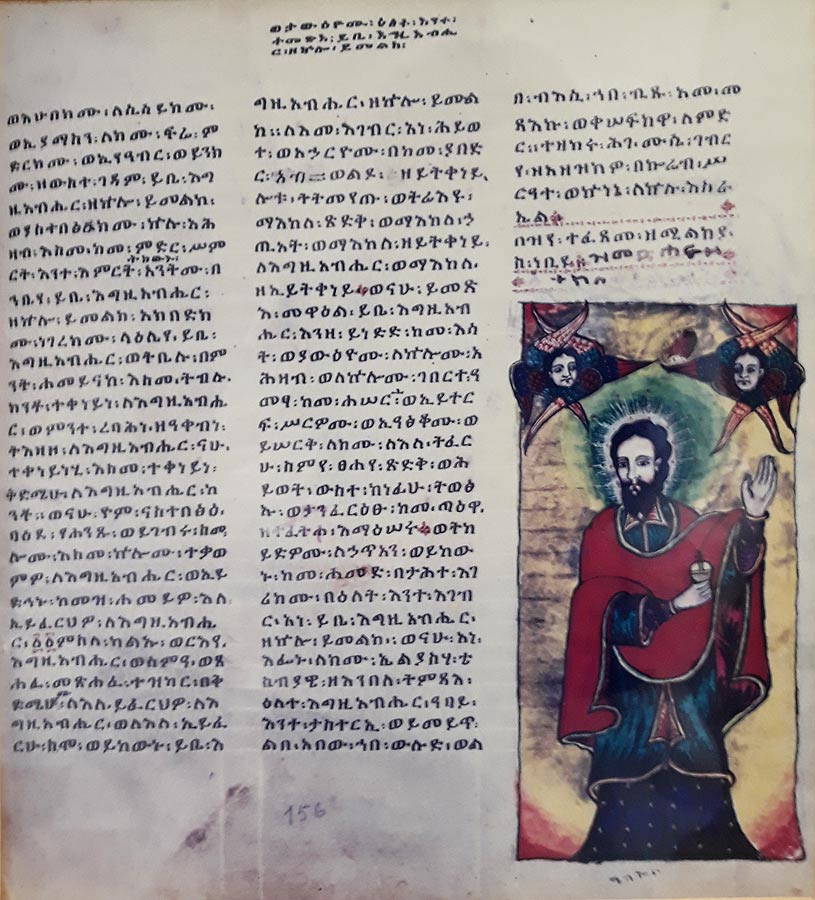 ወታውዕዮሙ፡ ዕለት፡ እንተ፡
ትመጽእ፡ ይቤ፡ እግዚአብሔ
ር፡ ዘኵሉ፡ ይመልክ፡
ወእሁበክሙ፡ ለሲሳይክሙ፡
ወኢያማስን፡ ለክሙ፡ ፍሬ፡ ም
ድርክሙ፡ ወኢየዓብር፡ ወይንክ
ሙ፡ ዘውስተ፡ ገዳም፡ ይቤ፡ እግ
ዚአብሔር፡ ዘኵሉ፡ ይመልክ፡
ወያስተበፅዑክሙ፡ ኵሉ፡ አሕ
ዛብ፡ እስመ፡ ከመ፡ ምድር፡ ሥም
ርት፡ እንተ፡ እምርት፡ አንትሙ፡ በ
ኀቤየ፡ ይቤ፡ እግዚአብሔር፡
ዘኵሉ፡ ይመልክ፡ አክበድክ
ሙ፡ ነገረክሙ፡ ላዕሌየ፡ ይቤ፡
እግዚአብሔር፡ ወትቤሉ፡ በም
ንት፡ ሐመይናከ፡ እስመ፡ ትብሉ፡
ከንቶ፡ ተቀነይነ፡ ለእግዚአብሔ
ር፡ ወምንተ፡ ረባሕነ፡ ዘዓቀብነ፡
ትእዛዘ፡ ለእግዚአብሔር፡ ናሁ፡
ተቀነይነሂ፡ እስመ፡ ተቀነይነ፡
ቅድሜሁ፡ ለእግዚአብሔር፡ ከ
ንቶ፡፡ ወናሁ፡ ዮም፡ ናስተበፅዕ፡
ባዕደ፡ የሐንጹ፡ ወይገብሩ፡ ከመ፡
ሎሙ፡ እስመ፡ ኵሎሙ፡ ተቃወ
ምዎ፡ ለእግዚአብሔር፡ ወኢይ
ድኅኑ፡ ከመዝ፡ ሐመይዎ፡ እለ፡
ኢይፈርህዎ፡ ለእግዚአብሔ
ር፡ ፩፩ ምስለ፡ ካልኡ፡ ወርእየ፡
እግዚአብሔር፡ ወሰምዓ፡ ወጸ
ሐፈ፡ መጽሐፈ፡ ተዝካር፡ በቅ
ድሜሆሙ፡ ለእለ፡ ይፈርህዎ፡ ለእ
ግዚአብሔር፡ ወለእለ፡ ኢይፈ
ርሁ፡ ስሞ፡ ወይከውኑ፡ ይቤ፡ እ
ግዚአብሔር፡ ዘኵሎ፡ ይመል
ክ፡፡ ለአመ፡ እገብር፡ አነ፡ ሕይወ
ተ፡ ወአኃርዮሙ፡ በከመ፡ ያበድ
ር፡ አብ ወልዶ፡ ዘይትቀነይ፡
ሎቱ፡ ትትመየጡ፡ ወትሬእዩ፡
ማእከለ፡ ጻድቅ፡ ወማእከለ፡ ኃ
ጢአት፡ ወማእከለ፡ ዘይትቀነይ፡
ለእግዚአብሔር፡ ወማእከለ፡
ዘኢይትቀነይ፡ ወናሁ፡ ይመጽ
እ፡ መዋዕል፡ ይቤ፡ እግዚአብ
ሔር፡ እንዘ፡ ይነድድ፡ ከመ፡ እሳ
ት፡ ወያውዕዮሙ፡ ለኵሎሙ፡ አ
ሕዛብ፡ ወለኵሎሙ፡ ገበርተ፡ ዓ
መፃ፡ ከመ፡ ሐሠር፡ ወኢይተር
ፍ፡ ሥርዎሙ፡ ወኢዓፅቆሙ፡ ወ
ይሠርቅ፡ ለክሙ፡ ለእለ፡ ትፈር
ሁ፡ ስምየ፡ ፀሐየ፡ ጽድቅ፡ ወሕ
ይወት፡ ውስተ፡ ክነፊሁ፡ ትወፅ
ኡ፡ ወታንፈርዕፁ፡ ከመ፡ ጣዕዋ፡
ዘተፈትሐ፡ እማዕሠሩ፡ ወትከ
ይድዎሙ፡ ለኃጥአን፡ ወይከው
ኑ፡ ከመ፡ ሐመድ፡ በታሕተ፡ እገ
ሪክሙ፡ በዕለት፡ እንተ፡ እገብ
ር፡ አነ፡ ይቤ፡ እግዚአብሔር፡
ዘኵሎ፡ ይመልክ፡፡ ወናሁ፡ አነ፡
እፌኑ፡ ለክሙ፡ ኤልያስሃ፡ ቴ
ስብያዊ፡ ዘእንበለ፡ ትምጻእ፡
ዕለተ፡ እግዚአብሔር፡ ዓባይ፡
እንተ፡ ታስተርኢ፡ ወይመይጥ፡
ልበ፡ አበው፡ ኀበ፡ ውሉድ፡ ወል
በ፡ ብእሲ፡ ኀበ፡ ቢጹ፡ አመ፡ መ
ጻእኩ፡ ወቀሠፍክዋ፡ ለምድ
ር፡፡ ተዘከሩ፡ ሕገ፡ ሙሴ፡ ገብር
የ፡ ዘአዘዝክዎ፡ በኮሬብ፡ ሥ
ርዓተ፡ ወኵነኔ፡ ለኵሉ፡ እስራ
ኤል
በዝየ፡ ተፈጸመ፡ ዘሚልክያ፡
ስ፡ ነቢይ፡
156